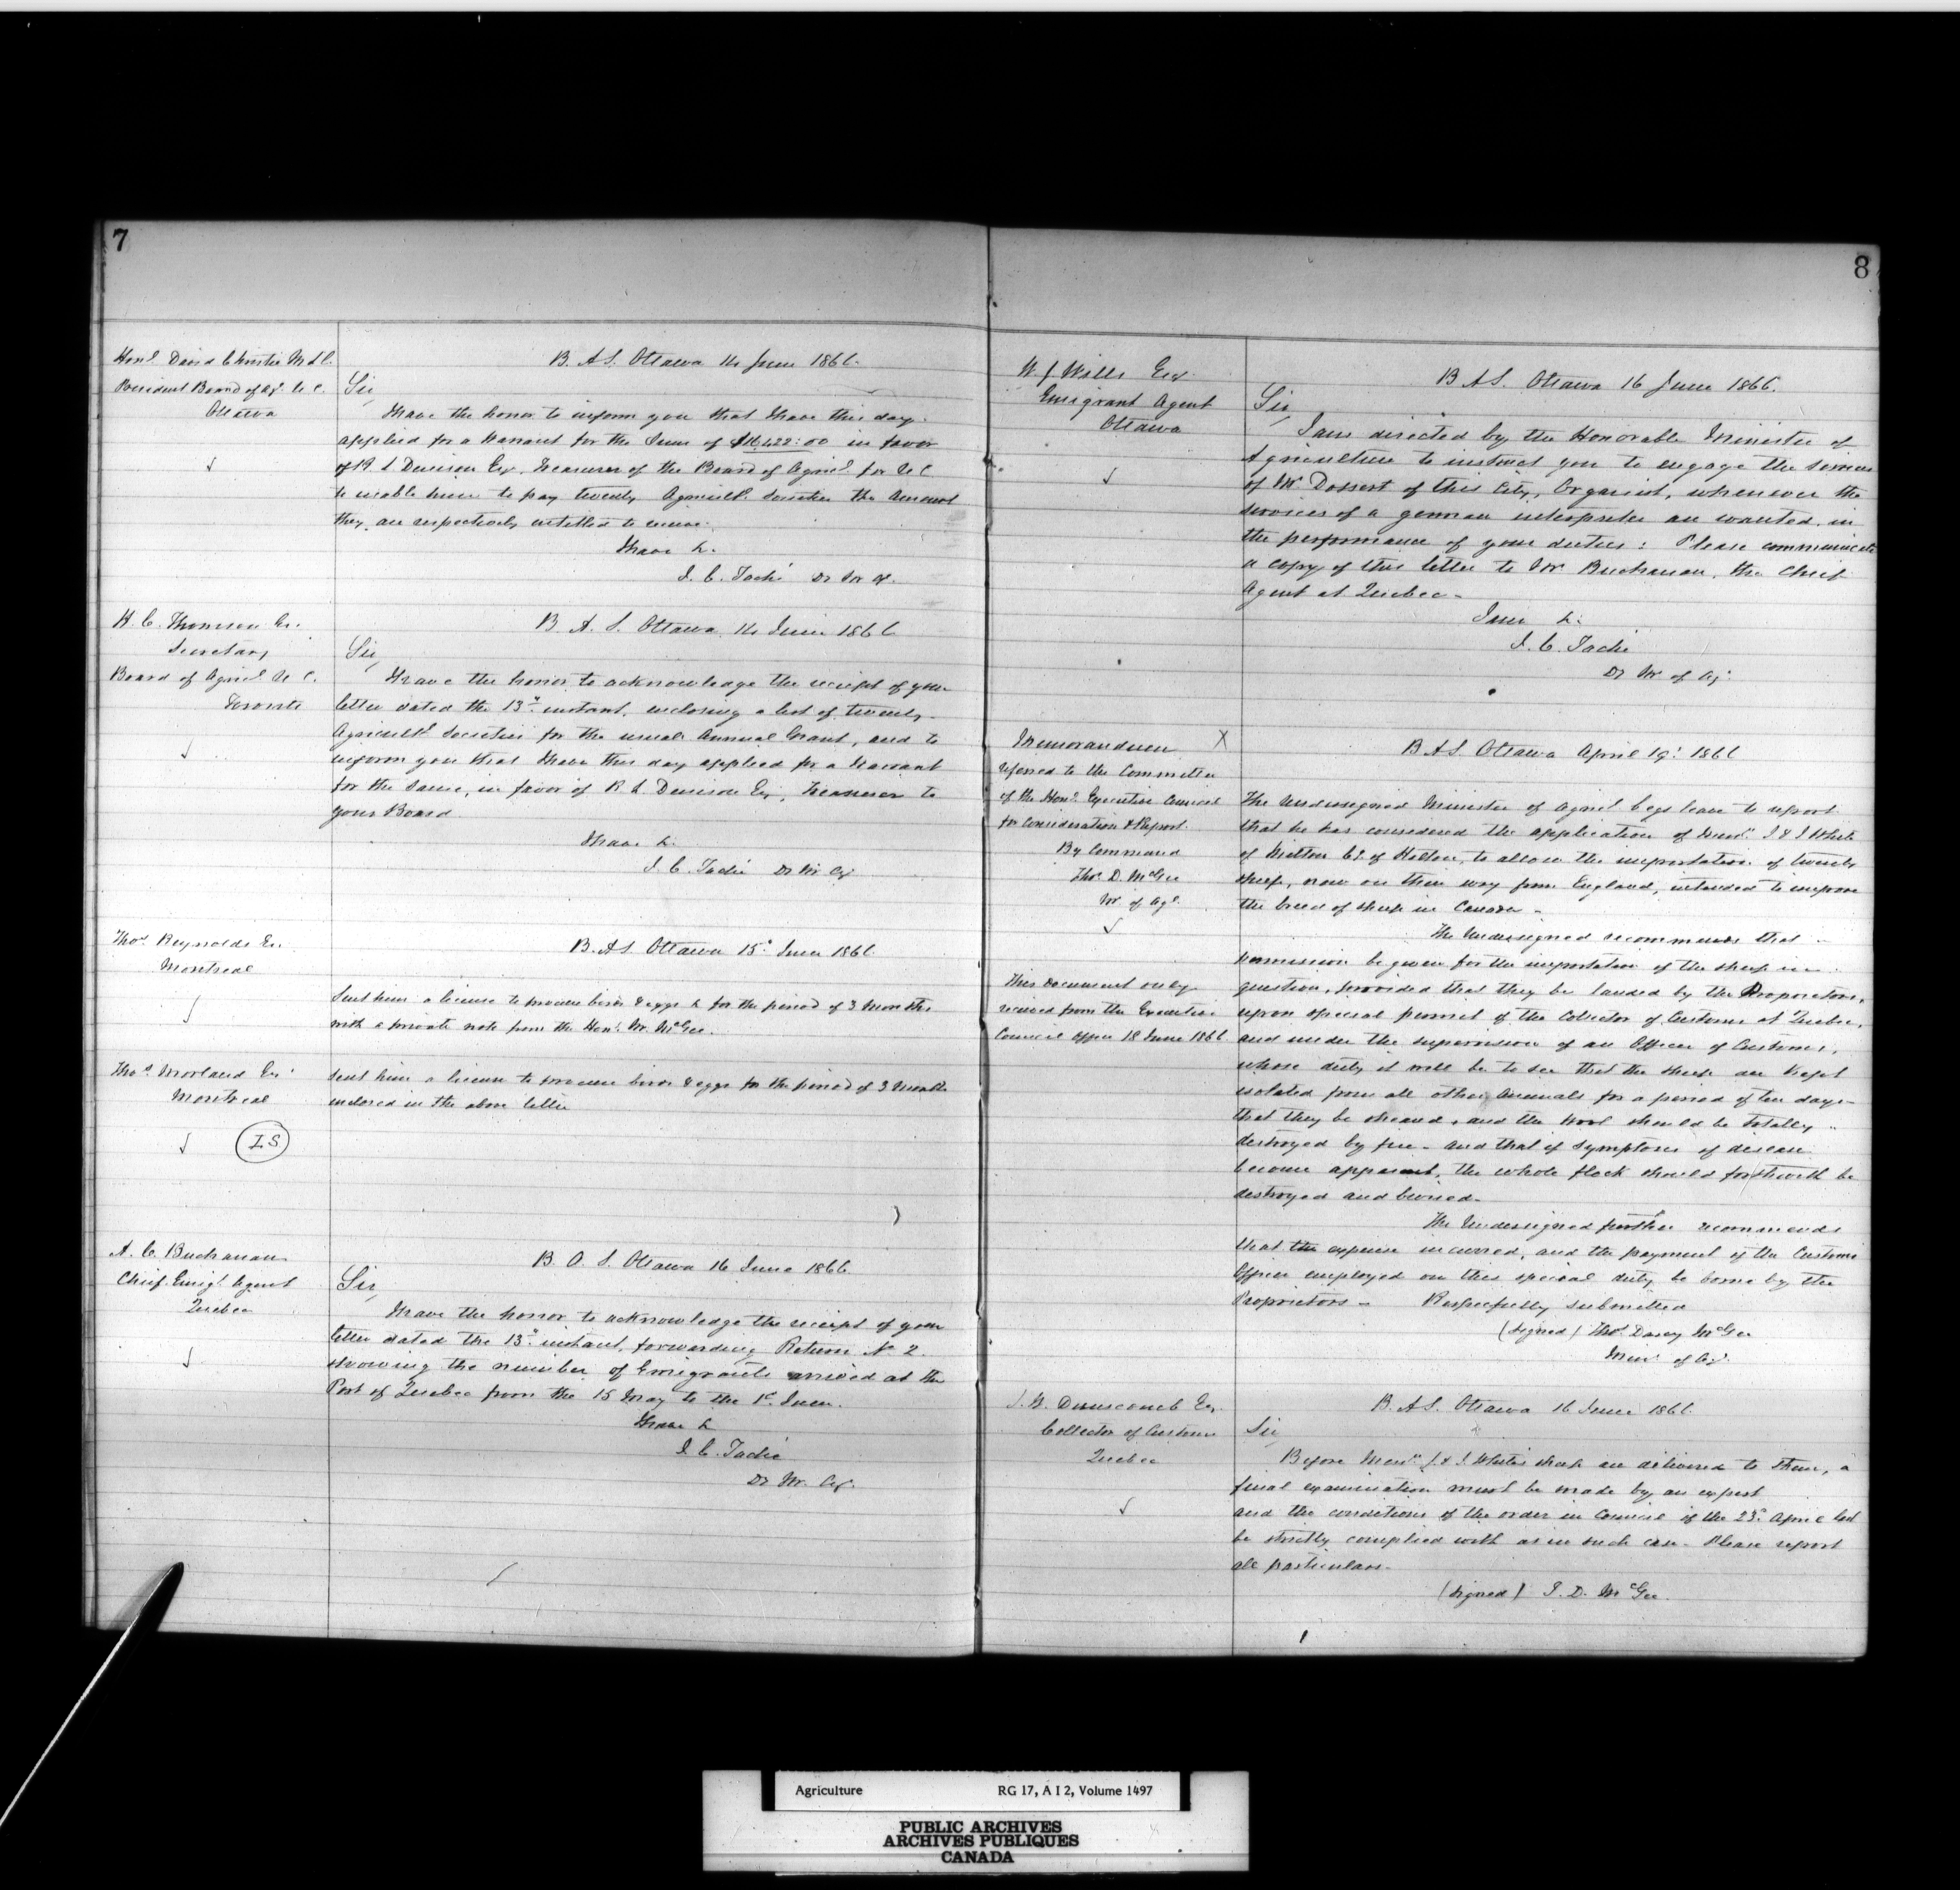 7
Honl David Christie M.L.C.
President Board of Agr. U.C.
Ottawa
B. A. S. Ottawa 14 June 1866.
Sir,
I have the honor to inform you that I have this day
applied for a Warrant for the Sum of in favor
of R. L. Denison Esq. Treasurer of the Board of Agricl. for U C
to enable him to pay twenty Agricultl. Societies the Amount
they are respectively entitled to receive.
I have &.
J. C. Taché Dy Mr of
H. C. Thomson Esr.
Secretary
Board of Agricl. U C.
Toronto
B. A. S. Ottawa, 14 June 1866
Sir,
I have the honor to acknowledge the receipt of your
letter dated the 13th instant, inclosing a list of twenty
Agricultl Societies for the usual Annual Grant, and to
inform you that I have this day applied for a Warrant
for the Same, in favor of R. L. Denison Esq, Treasurer to
your Board
I have &.
J. C. Taché Dy Mr Ag
Thos. Reynolds Esr.
Montreal
B. A. S. Ottawa 15th June 1866.
Sent him a license to procure birds & eggs & for the period of 3 Months
with a private note from the Hon. Mr. McGee.
Thos. Morland Esr.
Montreal
I.S
Sent him a license to procure birds & eggs for the period of 3 Months
inclosed in the above letter
A. C. Buchanan
Chief Emigt. Agent
Quebec
B. O. S. Ottawa 16 June 1866
Sir,
I have the honor to acknowledge the receipt of your
letter dated the 13th instant, forwarding Return No 2.
showing the number of Emigrants arrived at the
Port of Quebec from the 15 May to the 1st. June.
I have &
J. C. Taché
Dy Mr. Ag.
8
W J Wills Esq.
Emigrant Agent
Ottawa
B A S. Ottawa 16 June 1866.
Sir,
I am directed by the Honorable Minister of
Agriculture to instruct you to engage the services
of Mr Dossert of this City, Organist, whenever the
services of a german interpreter are wanted in
the performance of your duties: Please communicate
a copy of this letter to Mr Buchanan, the Chief
Agent at Quebec -
I am &.
J. C. Taché
Dy Mr of Ag.
Memorandum X
referred to the Committee
of the Honl. Executive Council
for Consideration & Report.
By Command
Thos D. McGee
Mr of Agl.
This document only
received from the Executive
Council Office 18 June 1866
B A S. Ottawa April 19. 1866
The Undersigned Minister of Agricl. begs leave to report
that he has considered the application of Messrs J & J White
of Milton Co. of Halton, to allow the importation of twenty
sheep, now on their way from England, intended to improve
the breed of sheep in Canada -
The Undersigned recommends that -
permission be given for the importation of the sheep in
question, provided that they be landed by the Proprietors,
upon special permit of the Collector of Customs at Quebec,
and under the supervision of an Officer of Customs,
whose duty it will be to see that the sheep are kept
isolated from all other Animals for a period of ten days -
that they be sheared, and the Wool should be totally
destroyed by fire - and that if Symptoms of disease
become apparent, the whole flock should forthwith be
destroyed and buried -
The Undersigned further recommends
that the expense incurred, and the payment of the Customs
Officer employed on this special duty be borne by the
Proprietors - Respectfully submitted
(signed) Thos. Darcy McGee
Minr of Ag.
J. B. Dunscomb Esq.
Collector of Customs
Quebec
B. A S. Ottawa 16 June 1866.
Sir,
Before Messrs J. & J. White's sheep are delivered to them, a
final examination must be made by an expert
and the conditions of the order in Council of the 23d. April last
be strictly complied with as in such case - Please report
all particulars -
(signed) T. D. McGee
Agriculture RG 17, A I 2, Volume 1497
PUBLIC ARCHIVES
ARCHIVES PUBLIQUES
CANADA